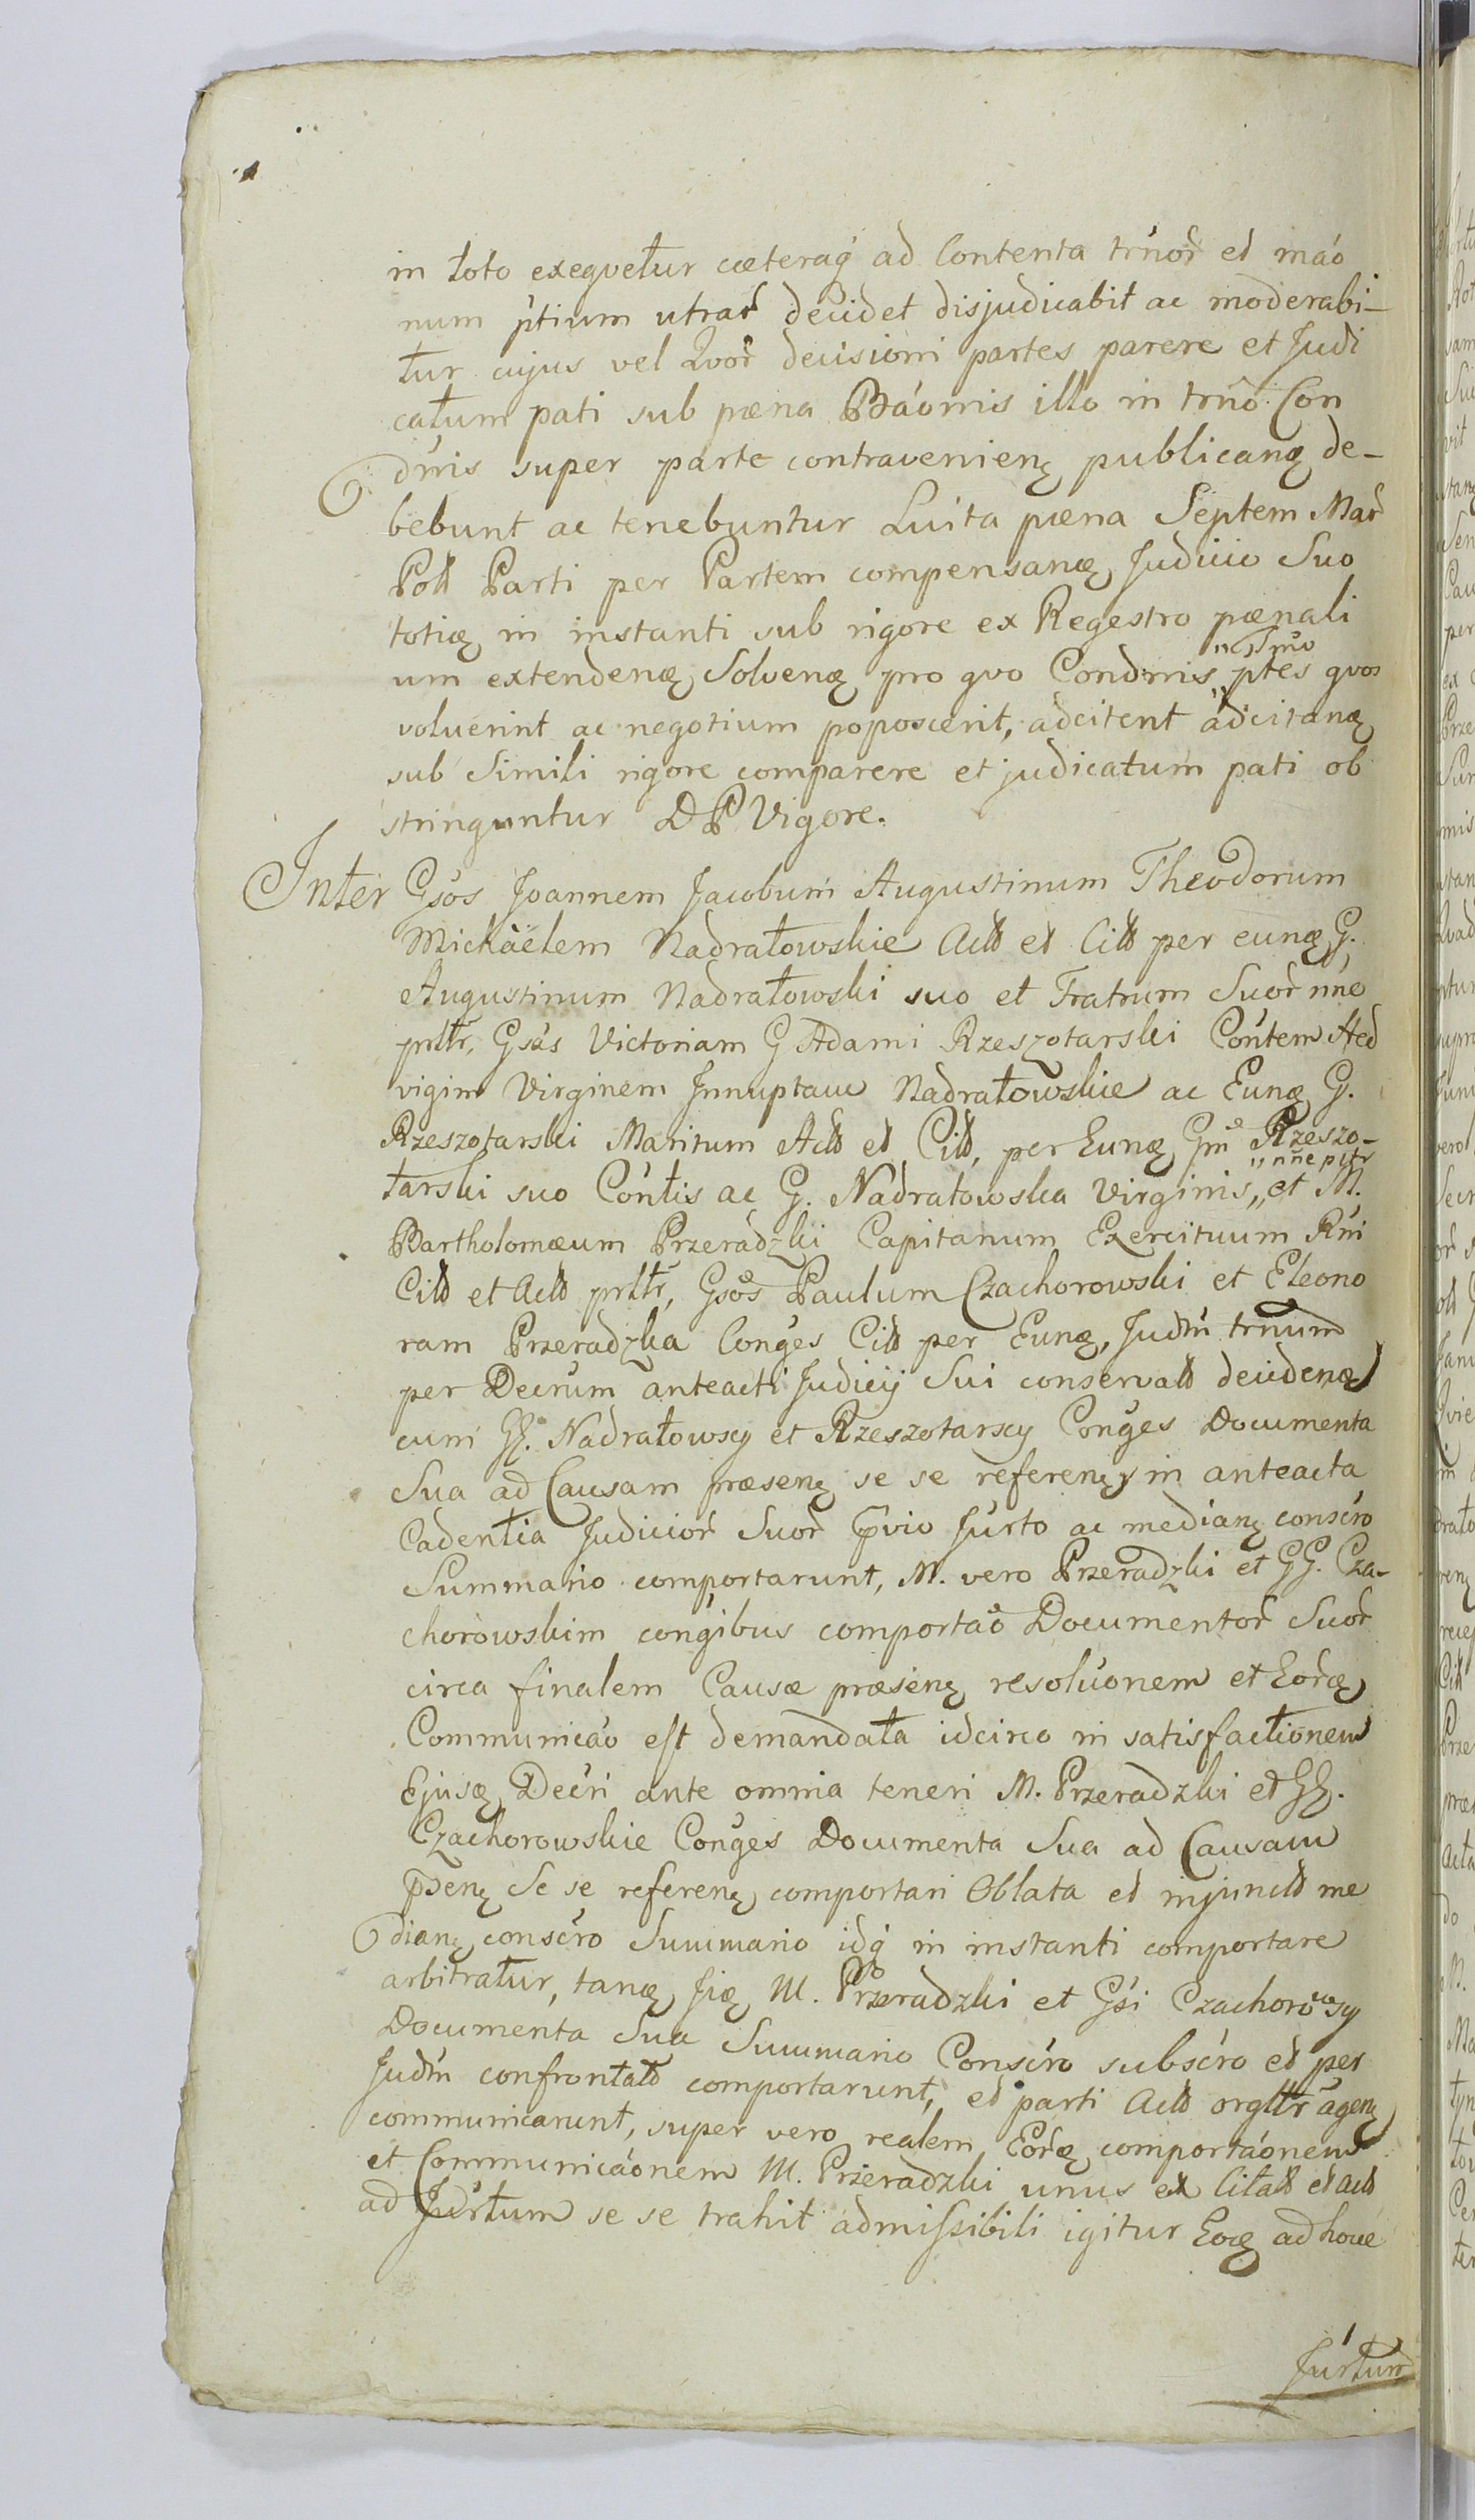 in toto exeqvetur cæteraq́ ad Contenta trńor̃ et máo
num ṕtium utrar̃ decidet disjudicabit ac moderabi-
tur cujus vel Qvor̃ decisioni partes parere et Judi
catum pati sub pæna Báonis illo in trńo Con
dńis super parte contravenienę publicanę de-
bebunt ac tenebuntur Luita pæna Septem Mar̃
Poll Parti per Partem compensanę Judicio Suo
totię in instanti sub rigore ex Regestro pænali
um extendenę Solvenę pro qvo Condmis „ ptes qvos
„ Trńo
voluerint ac negotium poposcerit, adcitent adcitanę
sub Simili rigore comparere et judicatum pati ob
stringuntur D P Vigore.
Inter Gsós Joannem Jacobum Augustinum Theodorum
Michäelem Nadratowskie Actt et Citt per eunę G.
Augustinum Nadratowski suo et Fratrum Suor̃ ńne
prttr, Gsás Victoriam G Adami Rzeszotarski Cońtem Hed
vigim Virginem Innuptam Nadratowskie ac Eunę G.
Rzeszotarski Maritum Actt et Citt, per Eunę Gm̃ Rzeszo-
tarski suo Cońtis ac G. Nadratowska Virginis „ et M.
„ nńe pttr
Bartholomæum Przeradzki Capitanum Exercituum Rńi
Citt et Actt prttr, Gsós Paulum Czachorowski et Eleono
ram Przeradzka Conǵes Citt per Eunę, Judm̃ trńum
per Decŕum anteacti Judicij Sui conservatt decidenę
cum GG. Nadratowscy et Rzeszotarscy Conǵes Documenta
Sua ad Causam præsenę se se referenę in anteacta
Cadentia Judicior̃ Suor̃ p̃vio Juŕto ac medianę conscŕo
Summario comportarunt, M. vero Przeradzki et GG. Cza-
chorowskim conǵibus comportáo Documentor̃ Suor̃
circa finalem Causæ præsenę resolúonem et Eorę
Communicáo est demandata idcirco in satisfactionem
Ejusę Decŕi ante omnia teneri M. Przeradzki et GG.
Czachorowskie Conǵes Documenta Sua ad Causam
p̃senę Se se referenę comportari Oblata et injunctt me
dianę conscŕo Summario idq́ in instanti comportare
arbitratur, tanę Jię M. Przeradzki et Gśi Czachorowscy
Documenta Sua Summario Conscŕo subscŕo et per
Judm̃ confrontatt comportarunt, et parti Actt orgttr agenę
communicarunt, super vero realem Eorę comportáonem
et Communicáonem M. Przeradzki unus ex Citatt et Actt
ad Juŕtum se se trahit admissibili igitur Eoę ad hocce
Juŕtum